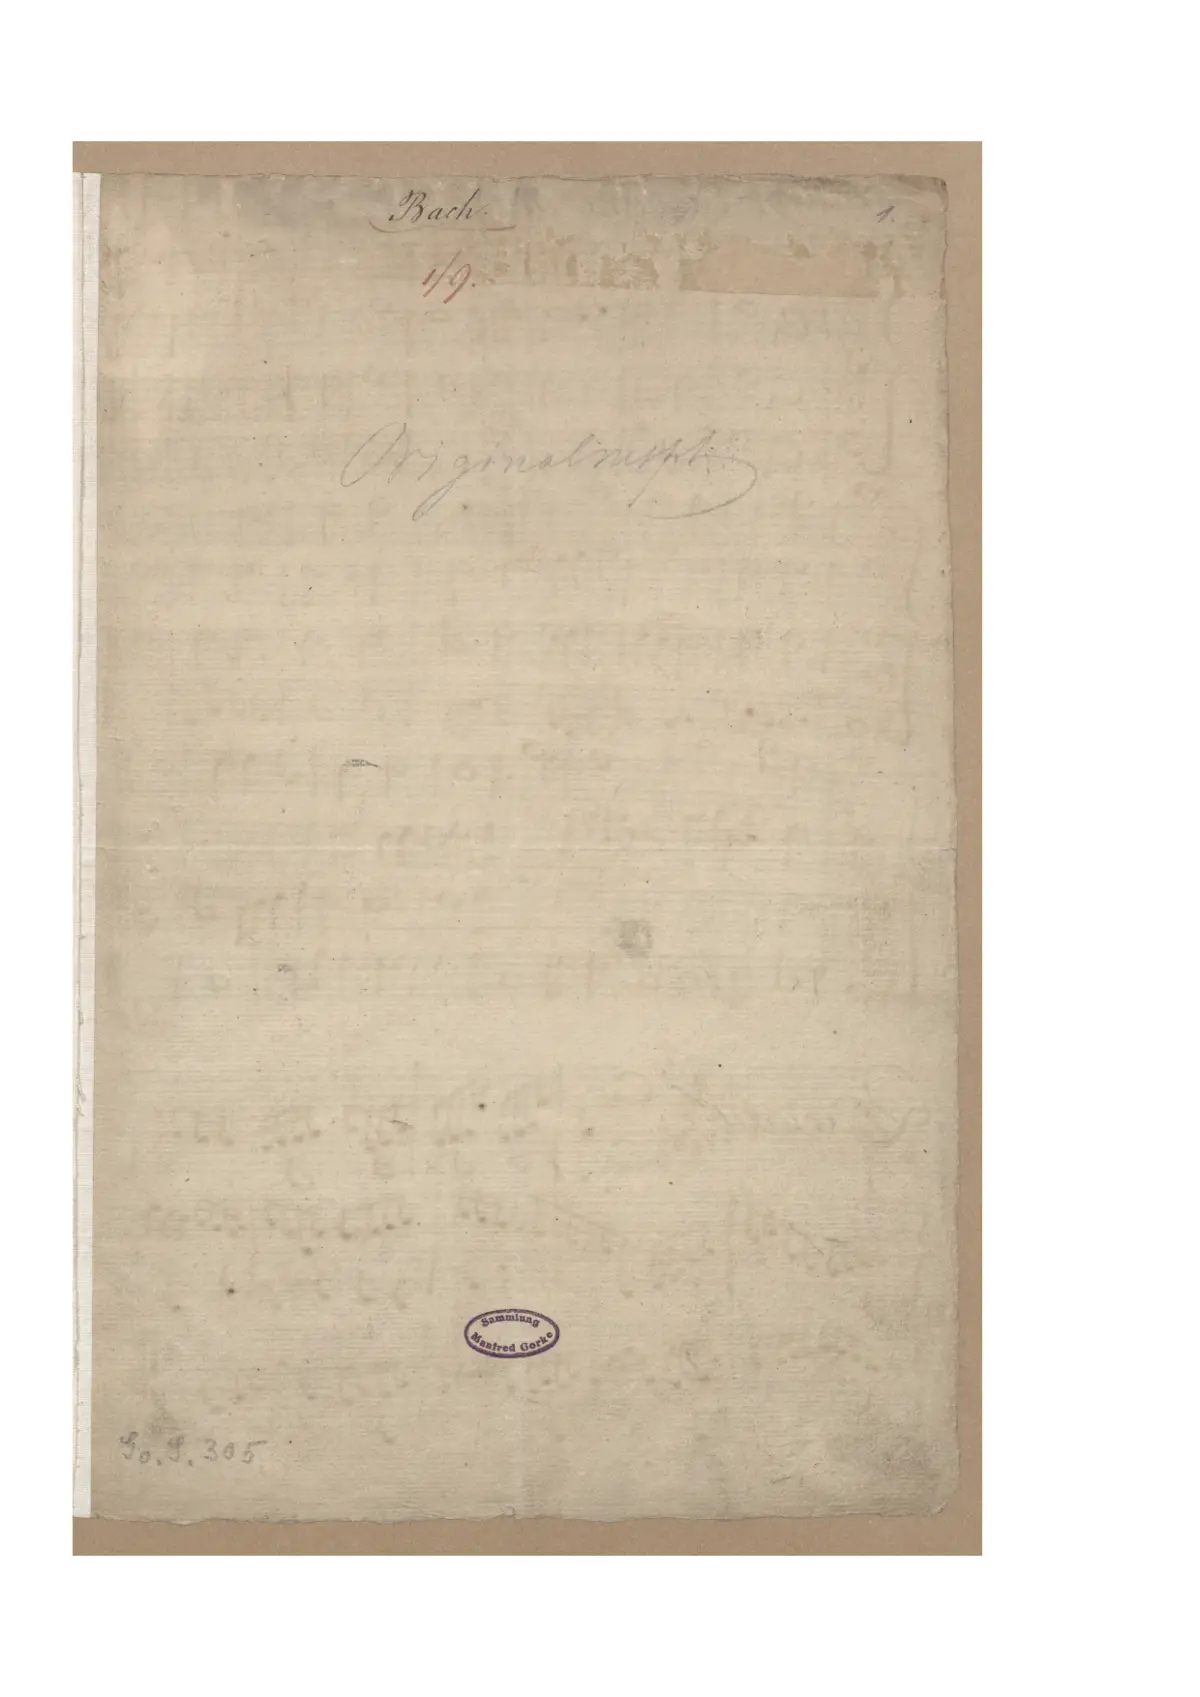 Bach.
1.
1/9.
Originalmspt.
Sammlung
Manfred Gorke
Go. S. 305